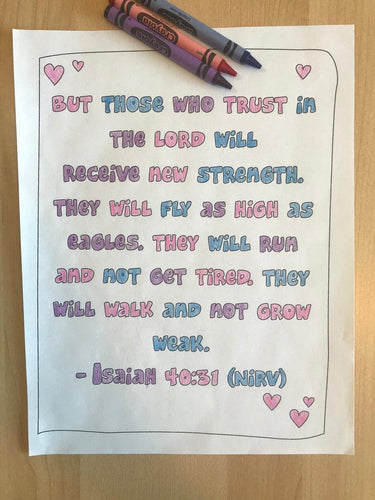 CRAYOLA
CRAYOLA
BUT THOSE WHO TRUST in
THE LORD WiLL
RECEIVE NEW STRENGTH.
THEY WiLL FLY AS HiGH AS
EAGLES. THEY WiLL RUN
AND NOT GET TiRED. THEY
WiLL WALK AND NOT GROW
WEAK.
- ISAIAH 40:31 (NiRV)